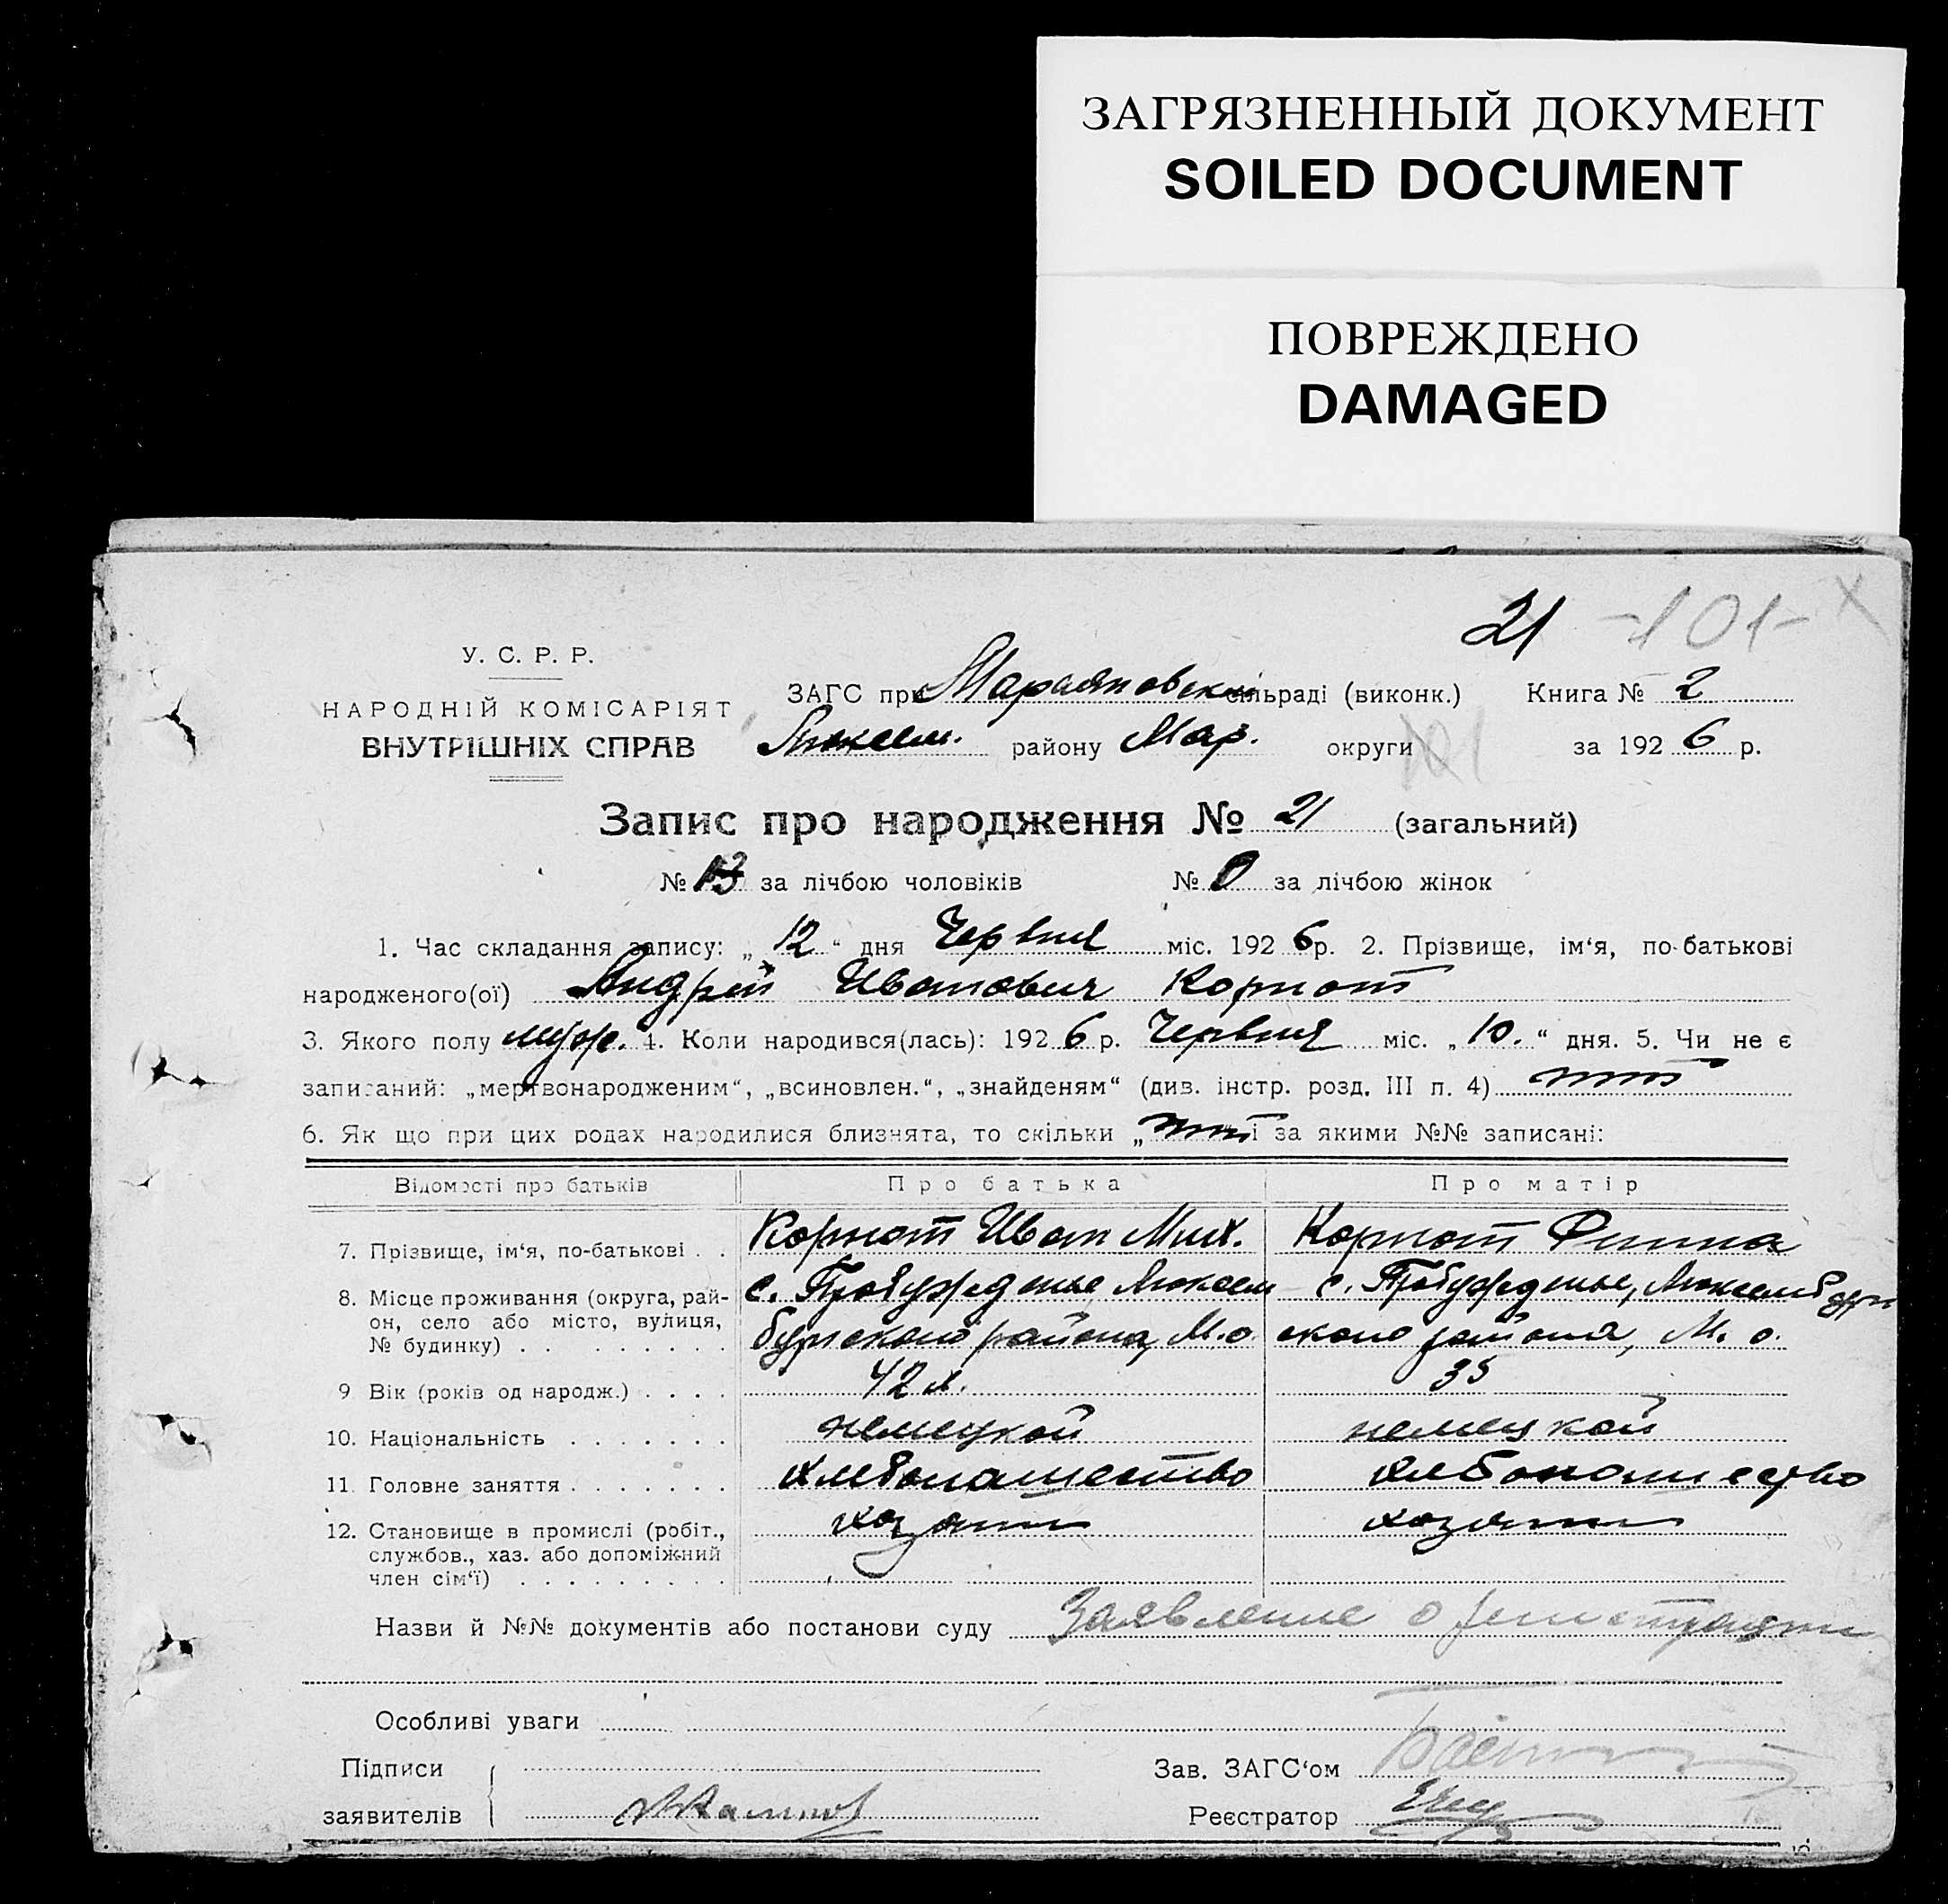 ЗАГРЯЗНЕННЫЙ ДОКУМЕНТ
SOILED DOCUMENT
ПОВРЕЖДЕНО
DAMAGED
21 -101- X
У. С. Р. Р.
НАРОДНІЙ КОМІСАРІЯТ
ВНУТРІШНІХ СПРАВ
ЗАГС при сільраді (виконк.) Книга № 2
Люксем. району Мар. округи за 1926 р.
101
Запис про народження № 21 (загальний)
№ 13 за лічбою чоловіків № 0 за лічбою жінок
1. Час складання запису: „12“ дня Червня міс. 1926 р. 2. Прізвище, ім‘я, по-батькові
народженого(ої) Андрей Иванович Корнот
3. Якого полу муж. 4. Коли народився(лась): 1926 р. Червня міс. „10.“ дня. 5. Чи не є
записаний: „мертвонародженим“, „всиновлен.“, „знайденям“ (див. інстр. розд. III п. 4)
6. Як що при цих родах народилися близнята, то скільки „ і за якими №№ записані:
Відомості про батьків Про батька Про матір
7. Прізвище, ім‘я, по-батькові . . Корнот Иван Мих. Корнот
8. Місце проживання (округа, рай-он, село або місто, вулиця, № будинку) . . с. Пробужденье Люксем бургского района, М.о. с. Пробужденье, Люксембургского района, М. о.
9 Вік (років од народж.) . . . . 42 л. 35
10. Національність . . . . . . . немецкой немецкой
11. Головне заняття . . . . . . . хлебопашество хлебопашество
12. Становище в промислі (робіт., службов., хаз. або допоміжний член сім‘ї) . . . . . . . . . хозяин хозяин
Назви й №№ документів або постанови суду Заявление о регистрации
Особливі уваги
Підписи
заявителів
Зав. ЗАГС‘ом
Реєстратор